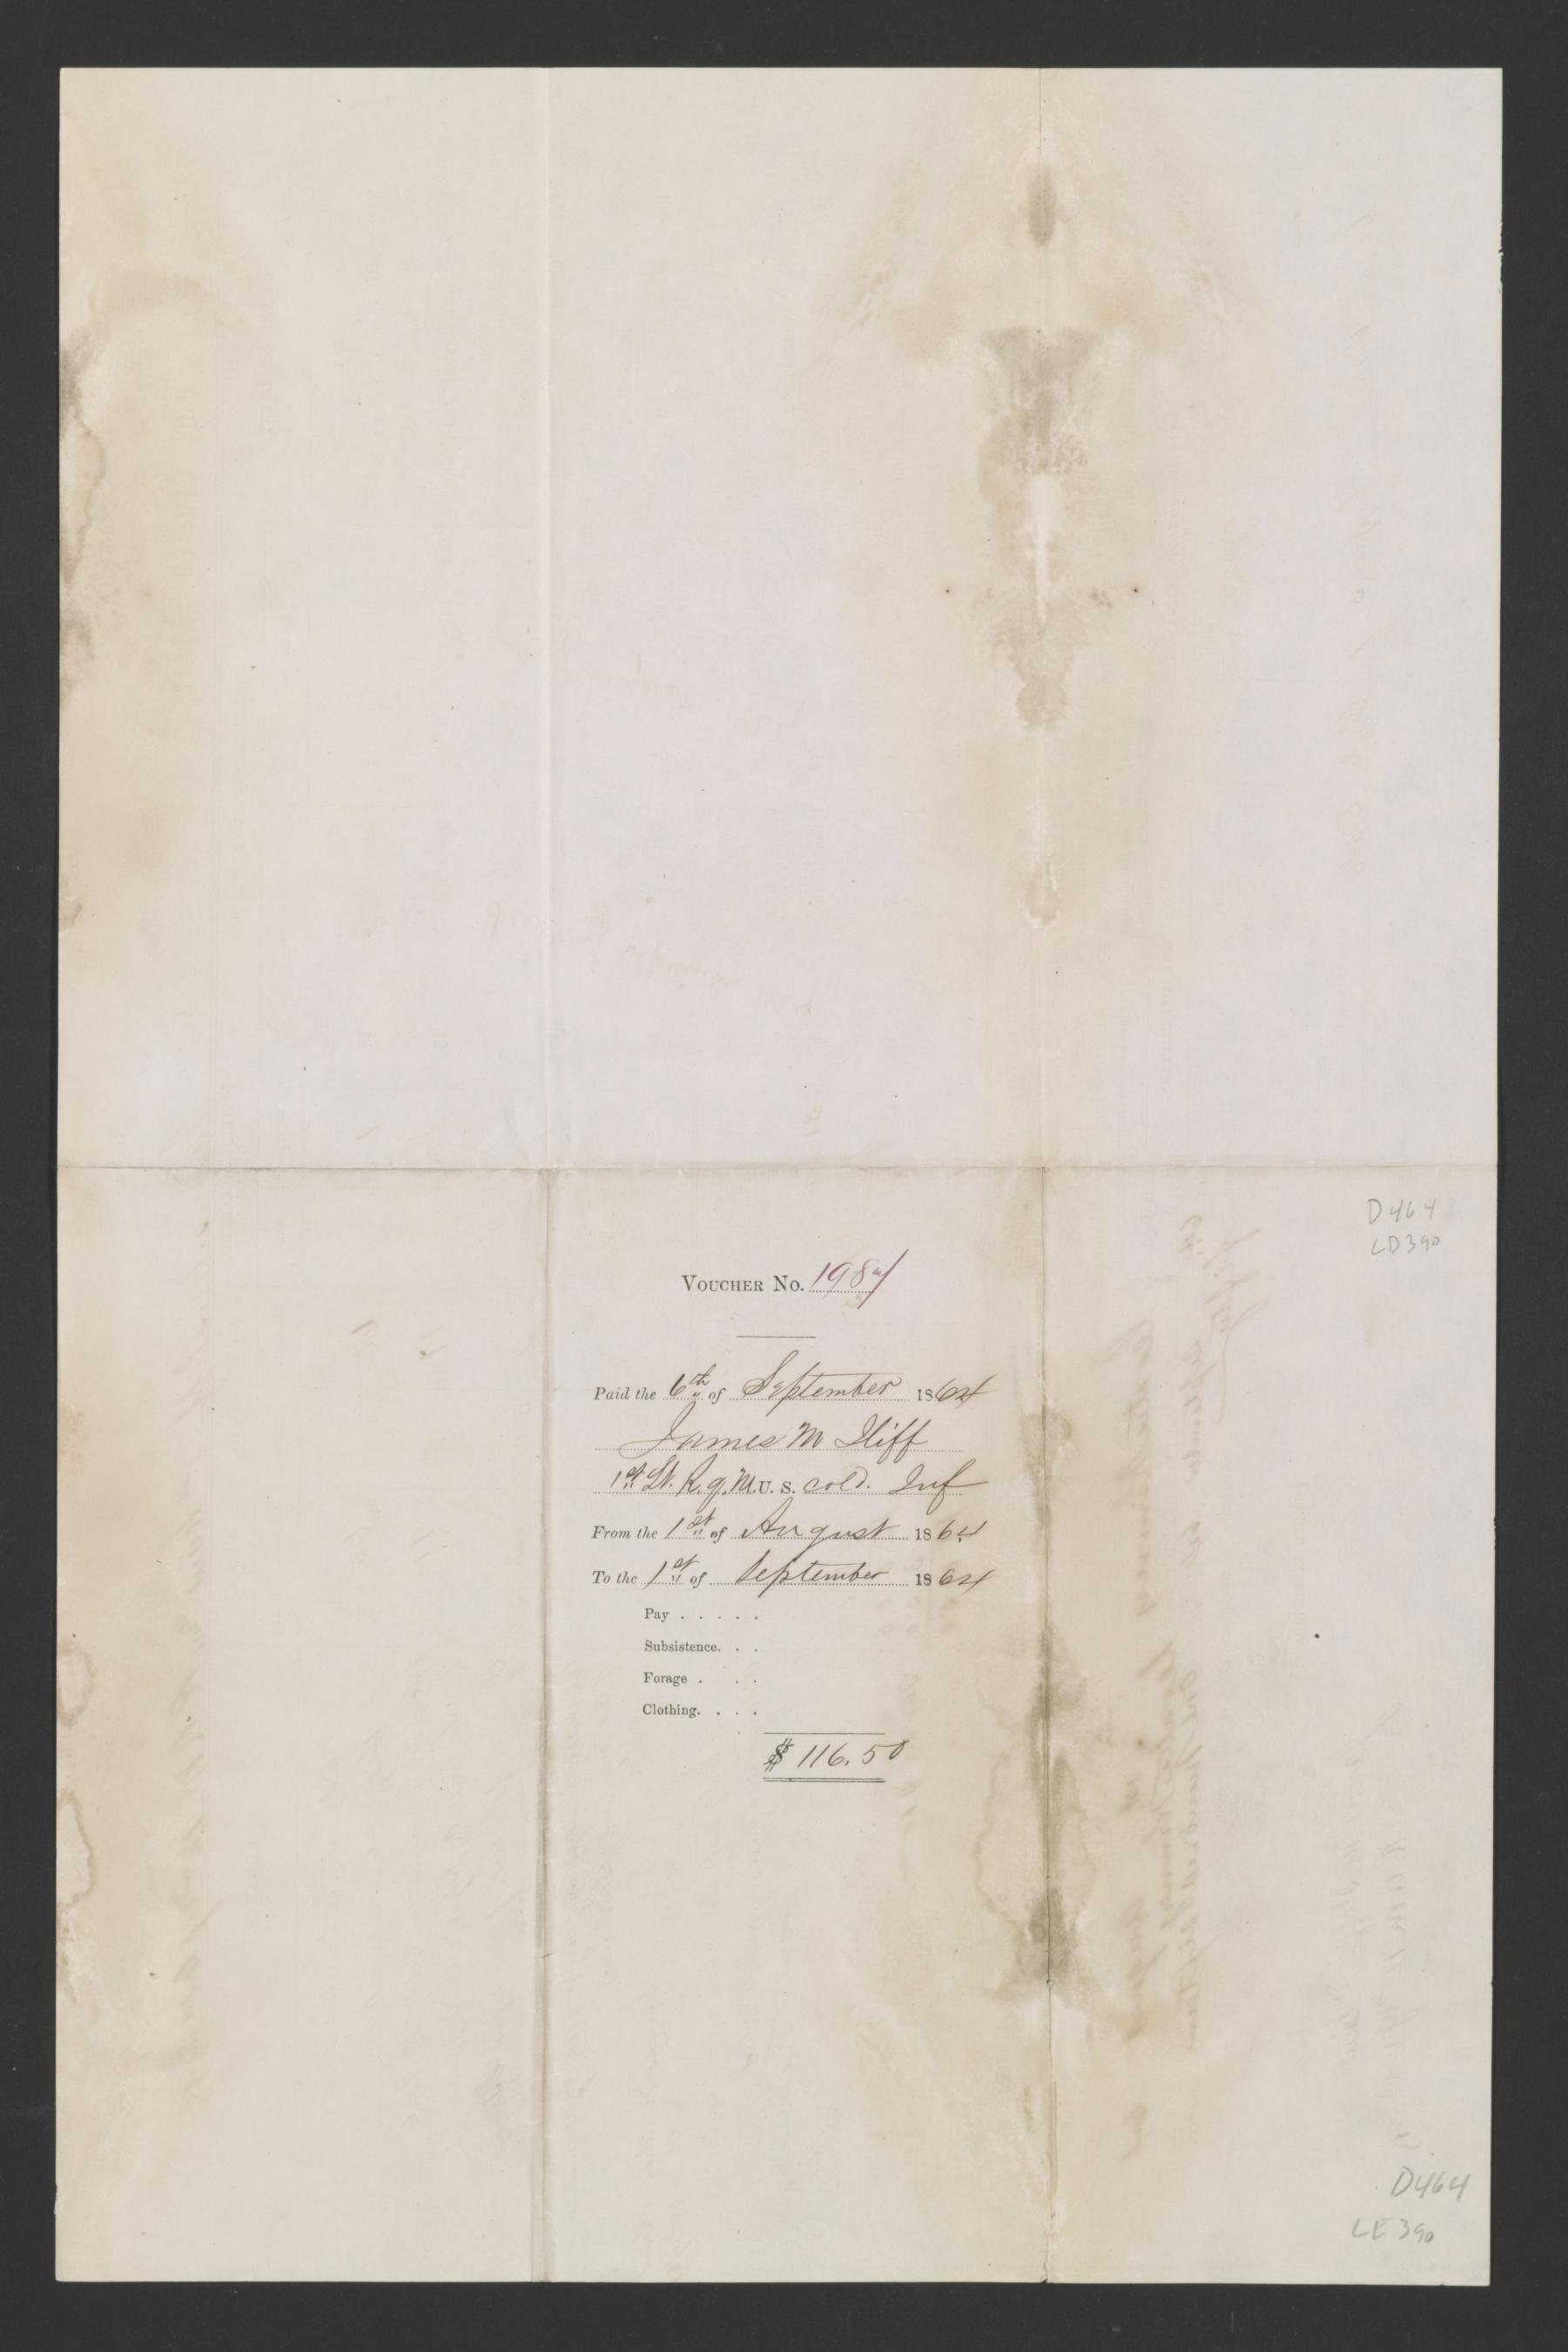 D464
LD390
VOUCHER No. 1984
Paid the 6th of September 1864
James M Iliff
1st Lt. R.Q.M. U. S. cold. Inf
From the 1st of August 1864
To the 1st of September 1864
Pay . . . . .
Subsistence. . .
Forage . . .
Clothing. . . .
$ 116.50
D464
LE390